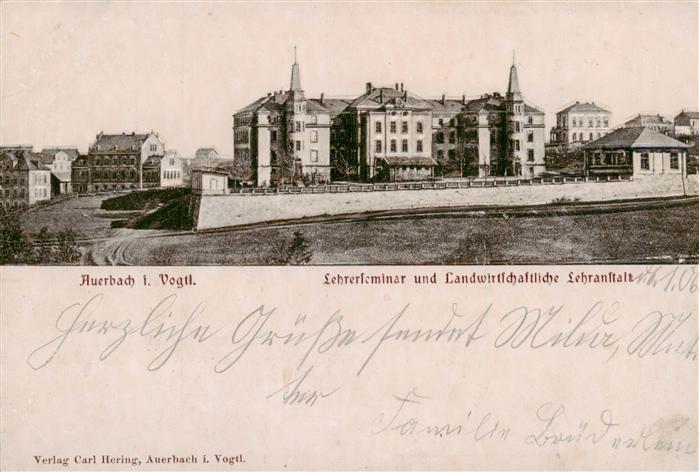 Auerbach i. Vogtl.
Lehrerseminar und Landwirtschaftliche Lehranstalt
1.06
Herzliche Grüße sendet Milda, Mut
ter
Familie Brüderlein
Verlag Carl Hering, Auerbach i. Vogtl.